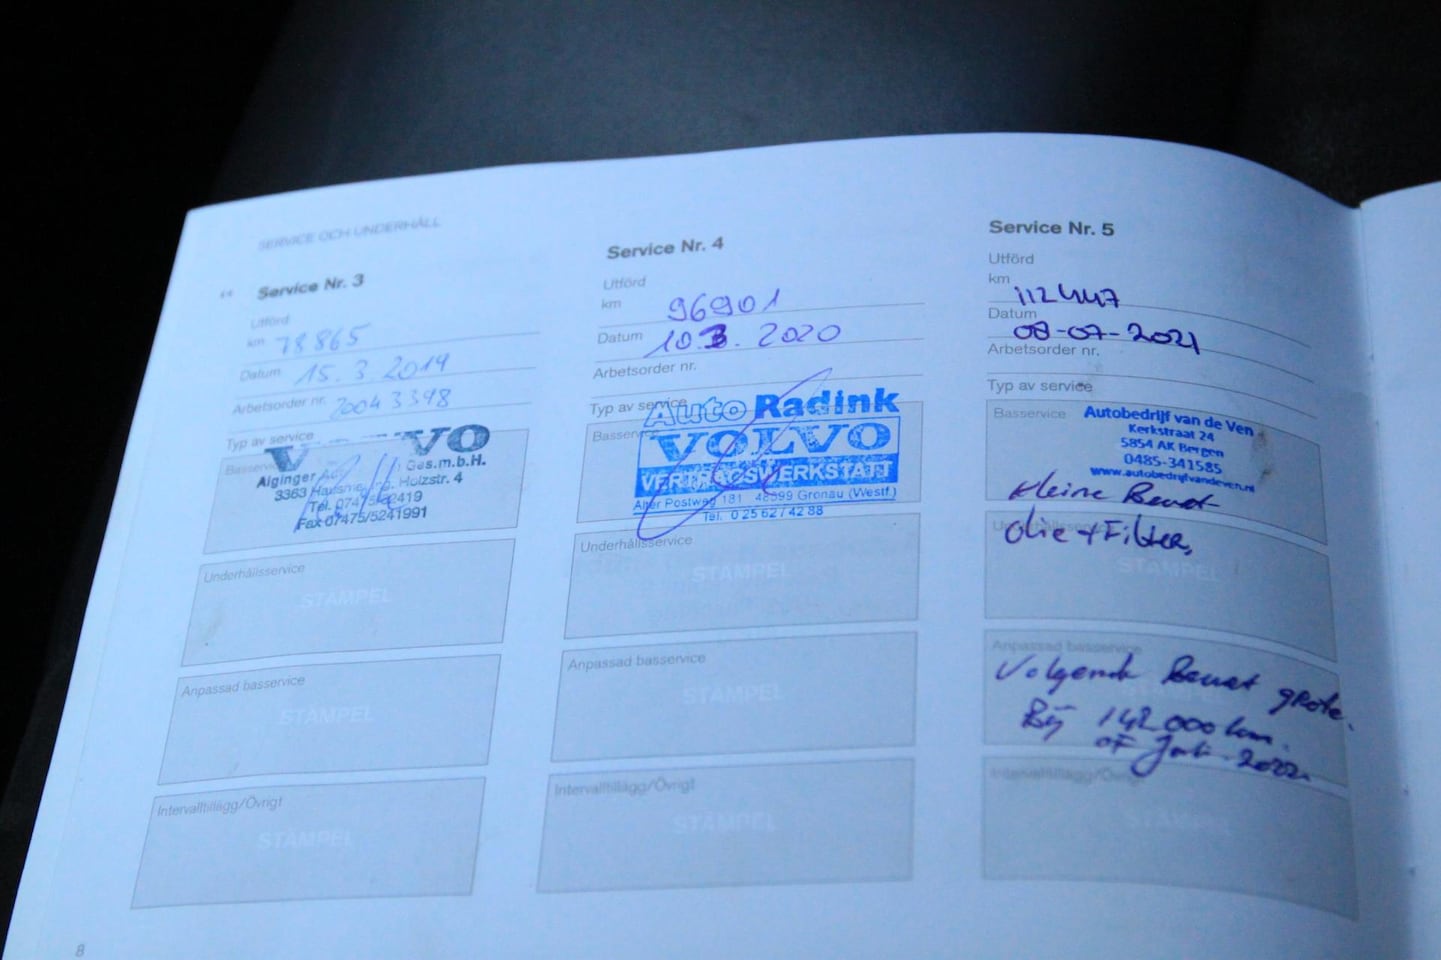 SERVICE OCH UNDERHÅLL
Service Nr. 3
Utförd
km 78865
Datum 15.3.2019
Arbetsorder nr. 20043398
Typ av service
Basservice
VO
Aiginger Ges.m.b.H.
3363 Holzstr. 4
Tel.
Fax 07475/5241991
Underhållsservice
STÄMPEL
Anpassad basservice
STÄMPEL
Intervalltillägg/Övrigt
STÄMPEL
8
Service Nr. 4
Utförd
km 96901
Datum 10.3.2020
Arbetsorder nr.
Typ av service
Basservice
Auto Radink
VOLVO
VERTRAGSWERKSTATT
Alter Postweg 181 48599 Gronau (Westf.)
Tel. 0 25 62 / 42 88
Underhållsservice
STÄMPEL
Anpassad basservice
STÄMPEL
Intervalltillägg/Övrigt
STÄMPEL
Service Nr. 5
Utförd
km 112447
Datum 08-07-2021
Arbetsorder nr.
Typ av service
Basservice
Autobedrijf van de Ven
Kerkstraat 24
5854 AK Bergen
0485-341585
www.autobedrijfvandeven.nl
kleine Beurt
Underhållsservice
Olie + Filter,
STÄMPEL
Anpassad basservice
Volgende Beurt grote.
Bij 142.000 km.
of Juli 2022
Intervalltillägg/Övrigt
STÄMPEL